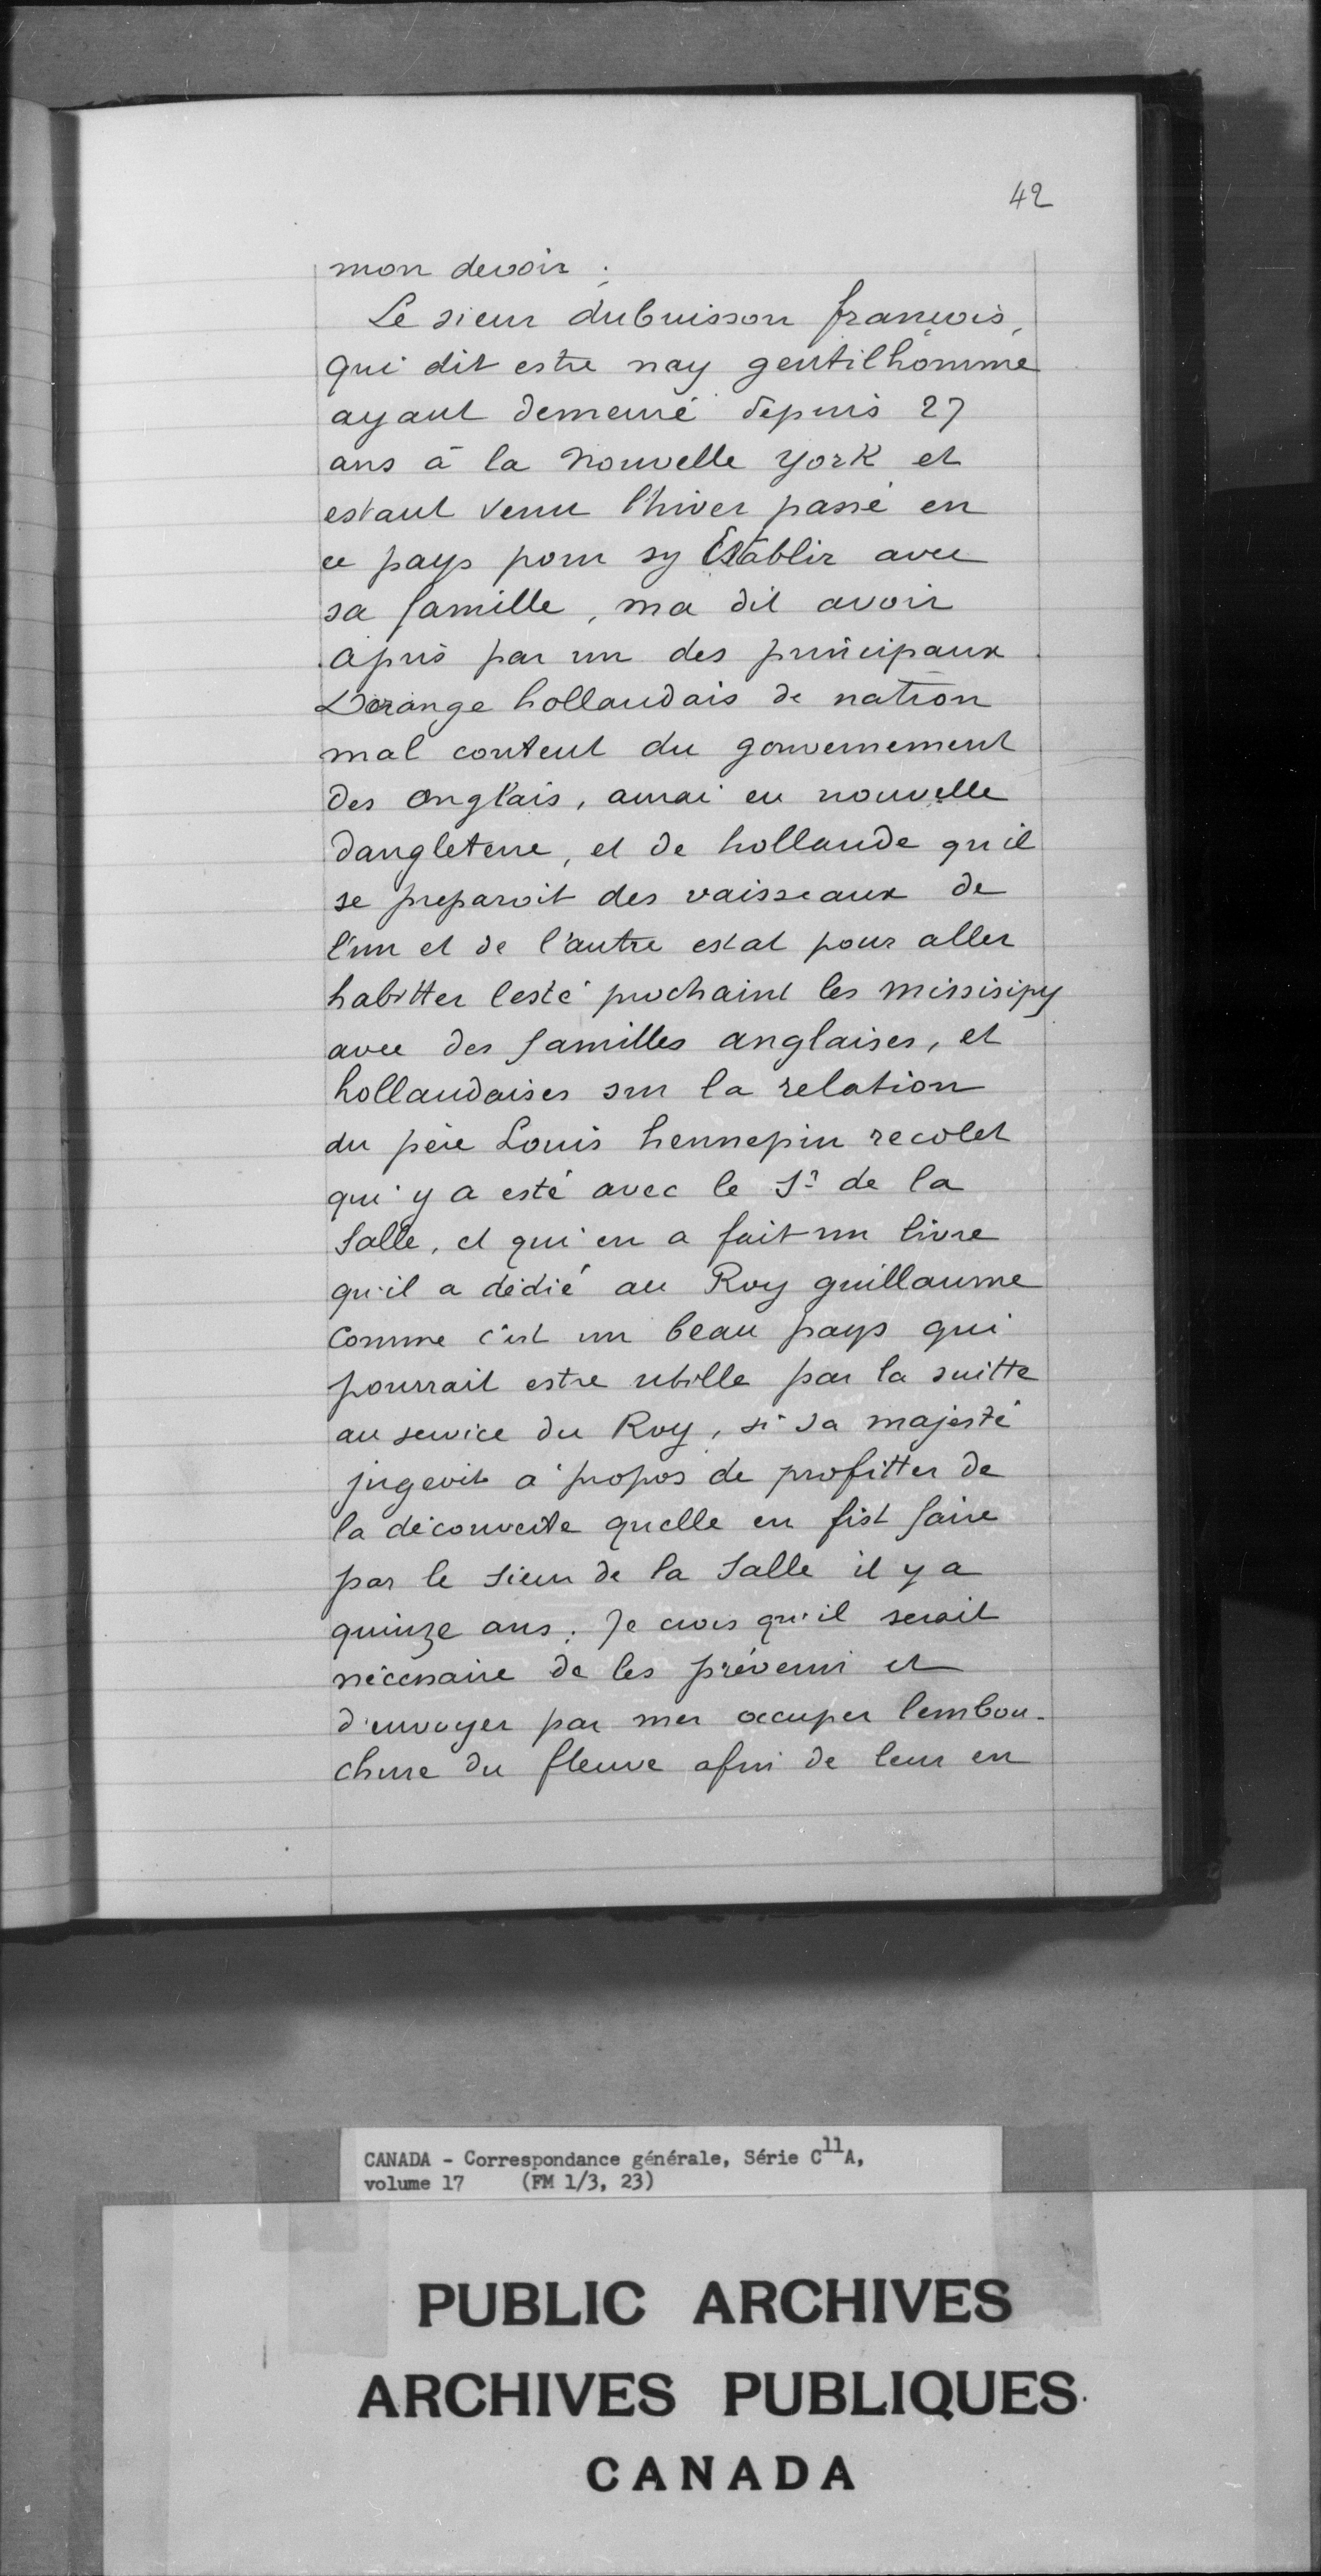 42
mon devoir ;
Le sieur dubuisson françois,
qui dit estre nay gentilhomme
ayant demeuré depuis 27
ans à la Nouvelle York et
estant venu l'hiver passé en
ce pays pour sy Establir avec
sa famille, ma dit avoir
apris par un des principaux
Dorange hollandais de nation
mal content du gouvernement
des anglais, aurai eu nouvelle
dangleterre, et de hollande qu'il
se preparoit des vaisseaux de
l'un et de l'autre estat pour aller
habitter lesté prochaint les missisipy
avec des familles anglaises, et
hollandaises sur la relation
du père Louis hennepin recolet
qui y a esté avec le Sr de la
Salle, et qui en a fait un livre
qu'il a dédié au Roy guillaume
Comme c'est un beau pays qui
pourrait estre utille par la suitte
au service du Roy, si sa majesté
jugeoit à propos de profitter de
la découverte quelle en fist faire
par le sieur de la Salle il y a
quinze ans. Je crois qu'il serait
nécessaire de les prévenir et
d'envoyer par mer occuper lembou-
chure du fleuve afin de leur en
CANADA - Correspondance générale, Série C11A,
volume 17 (FM 1/3, 23)
PUBLIC ARCHIVES
ARCHIVES PUBLIQUES
CANADA